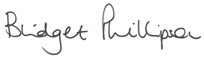 Bridget Phillipson